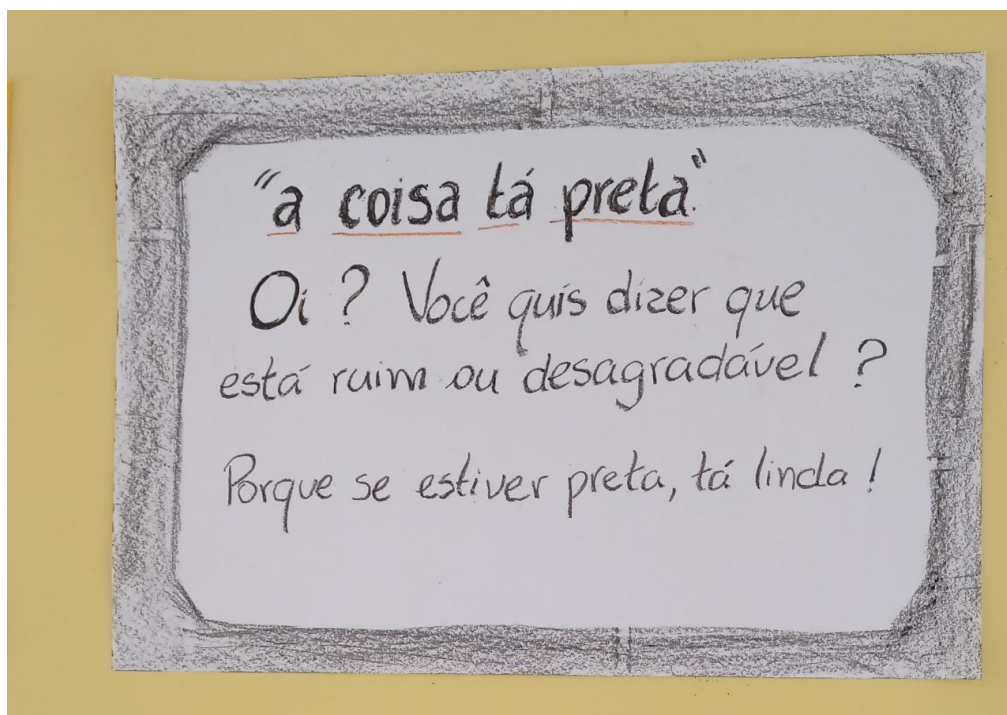 "a coisa tá preta"
Oi ? Você quis dizer que
está ruim ou desagradável ?
Porque se estiver preta, tá linda !